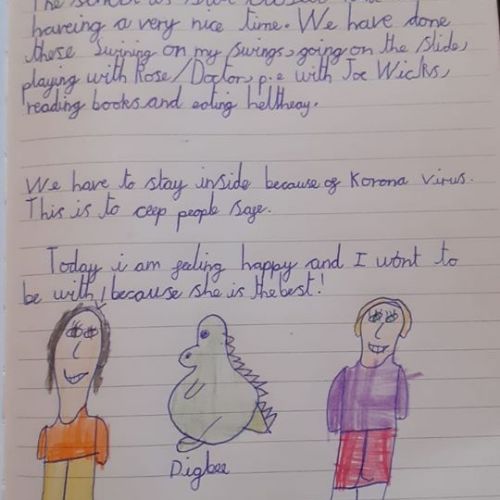 The school
haveing a very nice time. We have done
these swining on my swings, going on the slide,
playing with Rose/Doctor, p.e with Joe Wicks,
reading books and eating heltheay.
We have to stay inside because of Korona virus.
This is to ceep people safe.
Today i am feeling happy and I wont to
be with because she is the best!
Digbee